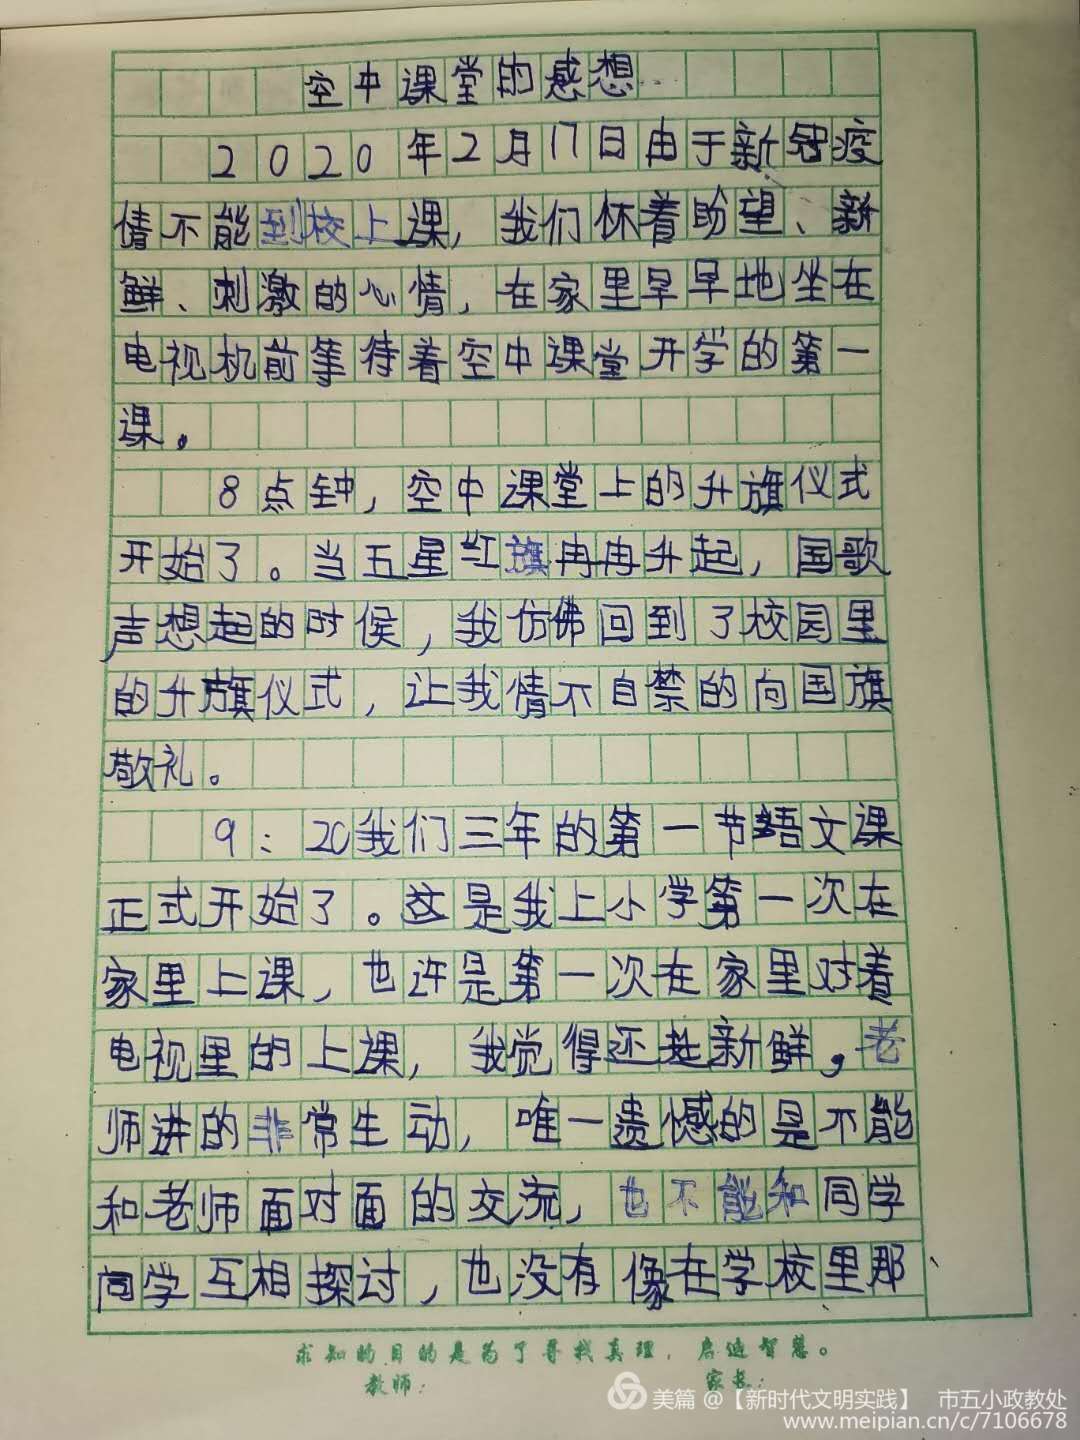 空中课堂的感想
2020年2月17日由于新冠疫
情不能到校上课，我们怀着盼望、新
鲜、刺激的心情，在家里早早地坐在
电视机前等待着空中课堂开学的第一
课。
8点钟，空中课堂上的升旗仪式
开始了。当五星红旗冉冉升起，国歌
声想起的时候，我仿佛回到了校园里
的升旗仪式，让我情不自禁的向国旗
敬礼。
9：20我们三年的第一节语文课
正式开始了。这是我上小学第一次在
家里上课，也许是第一次在家里对着
电视里的上课，我觉得还挺新鲜，老
师进的非常生动，唯一遗憾的是不能
和老师面对面的交流，也不能和同学
同学互相探讨，也没有像在学校里那
求知的目的是为了寻找真理，启迪智慧。
教师： 家长：
美篇 @【新时代文明实践】 市五小政教处
www.meipian.cn/c/7106678